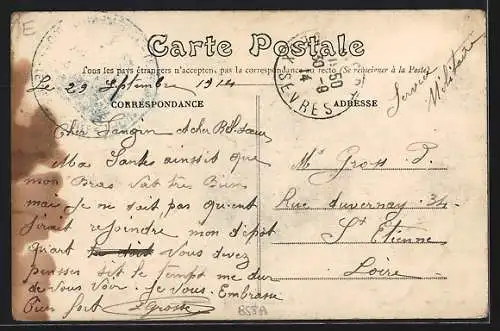 Carte Postale
Tous les pays étrangers n'acceptent pas la correspondance au recto (Se renseigner à la Poste)
Le 29 Septembre 1914
CORRESPONDANCE
ADRESSE
Service
Militaire
SEVRES
Cher et Cher
Ma Santé ainssit que
mon Bras Vat tres Bien
mai Je ne sait pas quent
Jirait rejoindre mon dépot
quart Vous devez
pensser sit le temps me dur
de Vous Voir. Je Vous Embrasse
Bien fort Gross
Mr Gross P.
Rue duvernay 34
St Etienne
Loire
BS8A